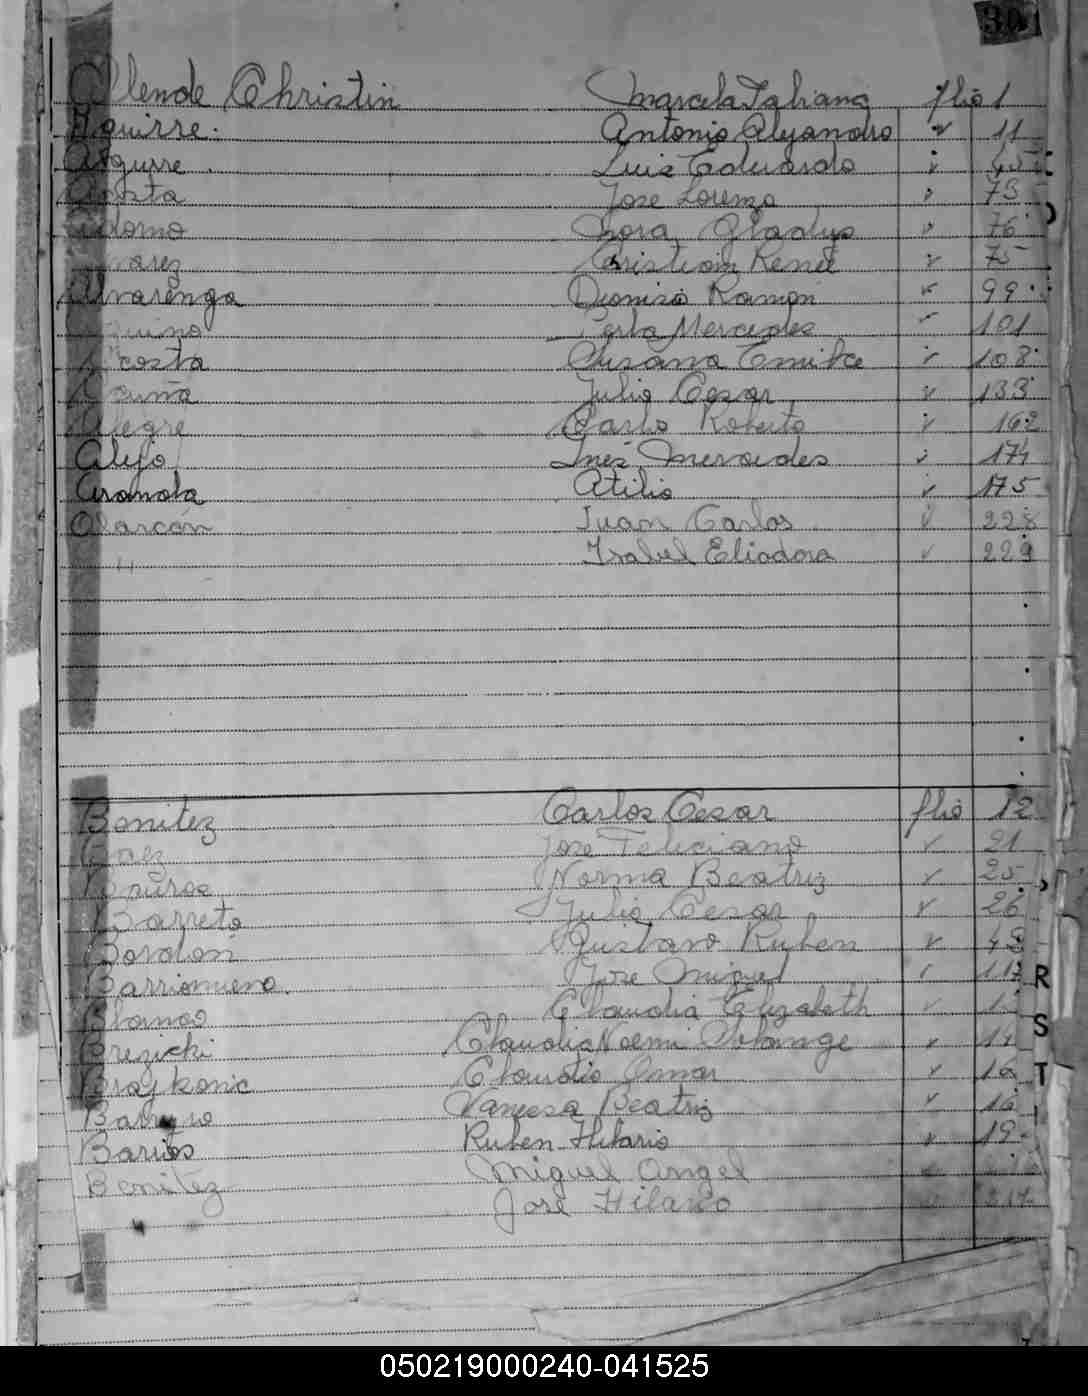 301
Allende Christin Marcela Fabiana flio 1
Aguirre. Antonio Alejandro " 11
Aguirre. Luis Eduardo " 45
Acosta Jose Lorenzo " 73
Adorno Nora Gladys " 76
Cristian René " 75
Alvarenga Dionisio Ramón " 99
Aquino Perla Mercedes " 101
Acosta Susana " 108
Acuña Julio Cesar " 133
Alegre Carlo Roberto " 162
Alejo Inés Mercedes " 174
Aranda Atilio " 175
Alarcón Juan Carlos " 228
" Isabel Eliodora " 229
Benitez Carlos Cesar flio 12
Baez Jose Feliciano " 21
Norma Beatriz " 25
Barreto Julio Cesar " 26
Bordón Gustavo Ruben " 43
Barrionuevo. Jose Miguel " 117
Blanco Claudia Elizabeth "
Brezicki Claudia Noemi Solange " 14
Claudio Omar " 16
Vanessa Beatriz " 16
Barrios Ruben Hilario " 19
Benitez Miguel Angel
Jose Hilario " 217
R
S
T
050219000240-041525